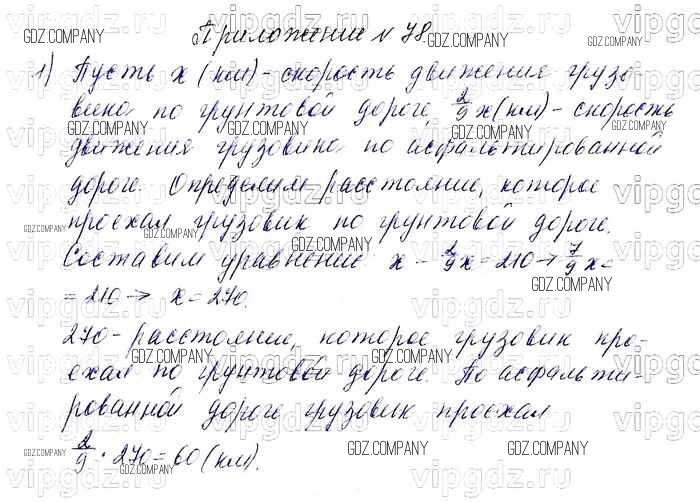 Приложение N 78.
1) Пусть x (км) - скорость движения грузо-
вика по грунтовой дороге, 2/9 x (км) - скорость
движения грузовика по асфальтированной
дороге. Определим расстояние, которое
проехал грузовик по грунтовой дороге.
Составим уравнение x - 2/9 x = 210 → 7/9 x =
= 210 → x = 270.
270 - расстояние, которое грузовик про-
ехал по грунтовой дороге. По асфальти-
рованной дороге грузовик проехал
2/9 · 270 = 60 (км).